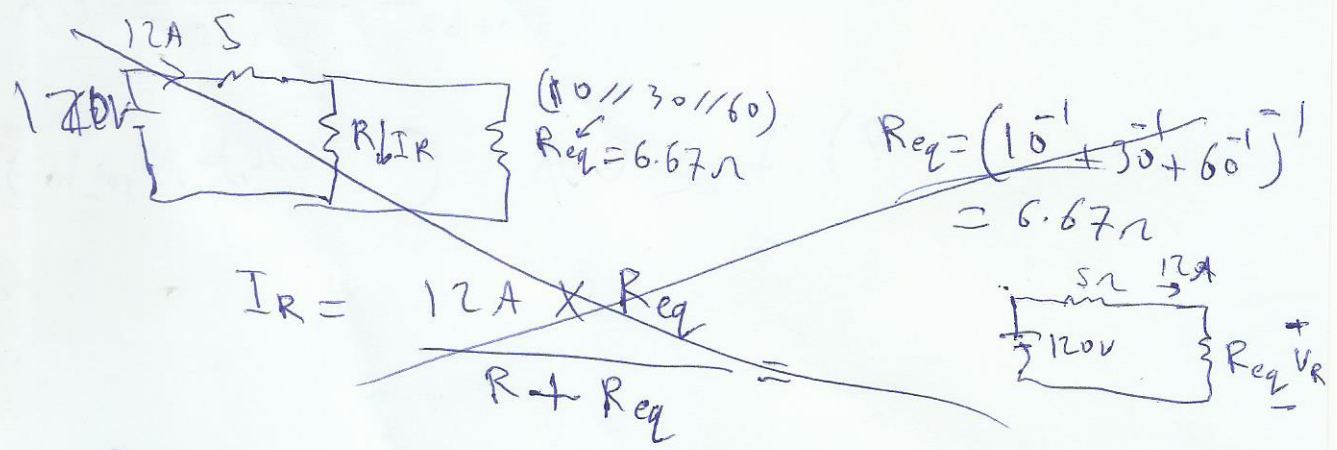 12A 5
120V
R↓I_R
(10//30//60)
Req = 6.67Ω
Req = (10⁻¹ + 30⁻¹ + 60⁻¹)⁻¹
= 6.67Ω
I_R = 12A × Req / R + Req =
5Ω 12A
120V
Req
+
V_R
−